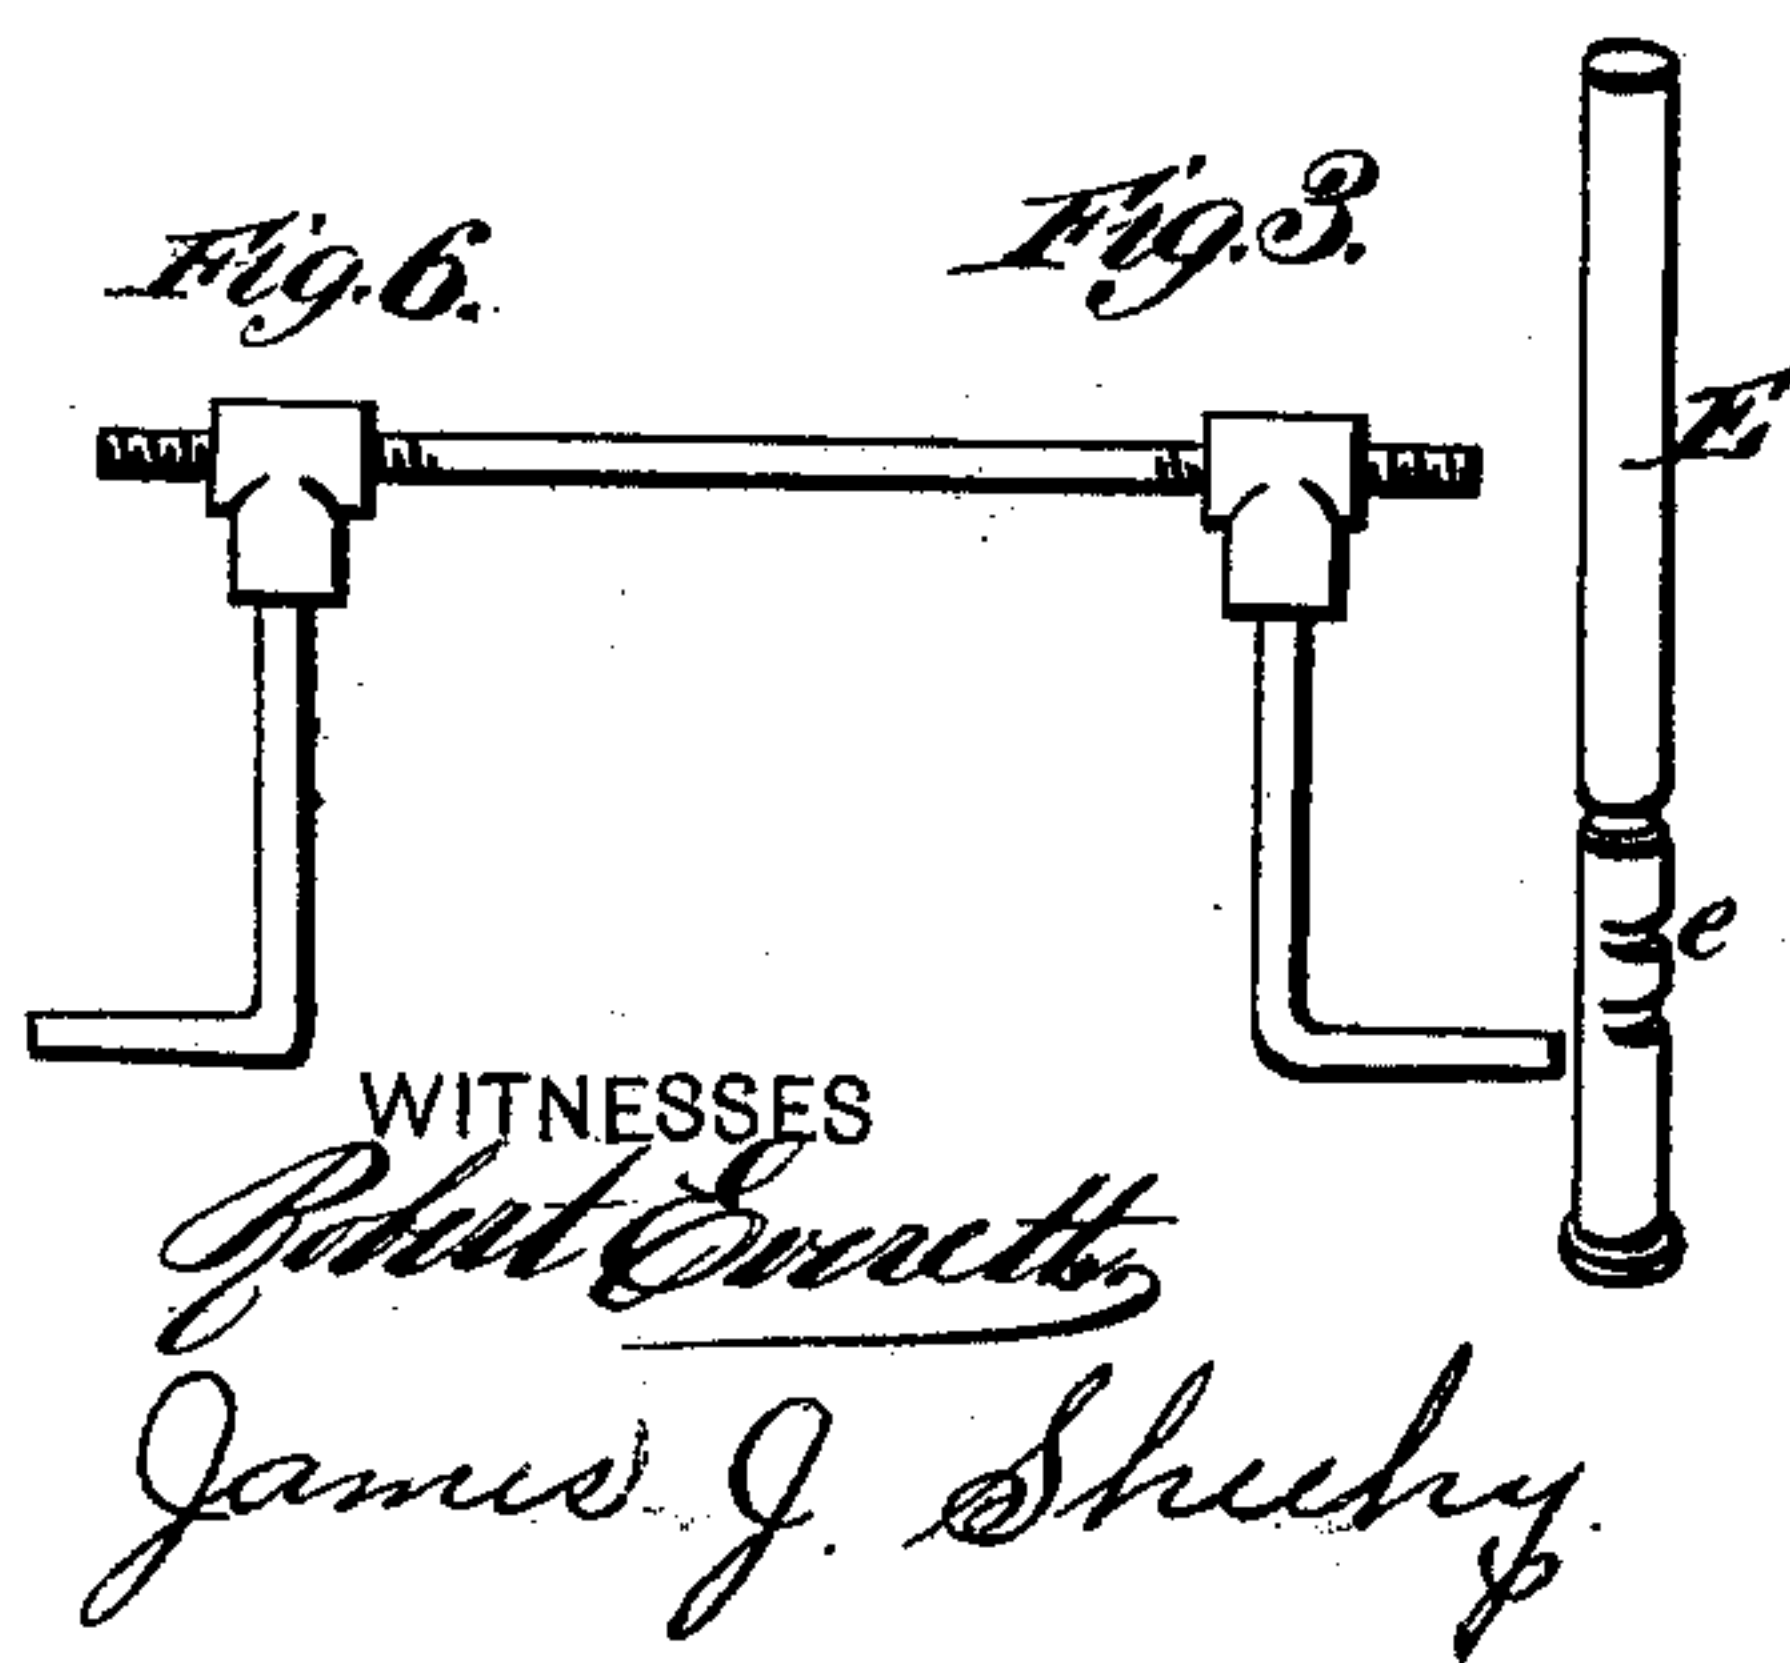 Fig. 6.
Fig. 3.
E
e
WITNESSES
Robert Everett
James J. Sheehy.